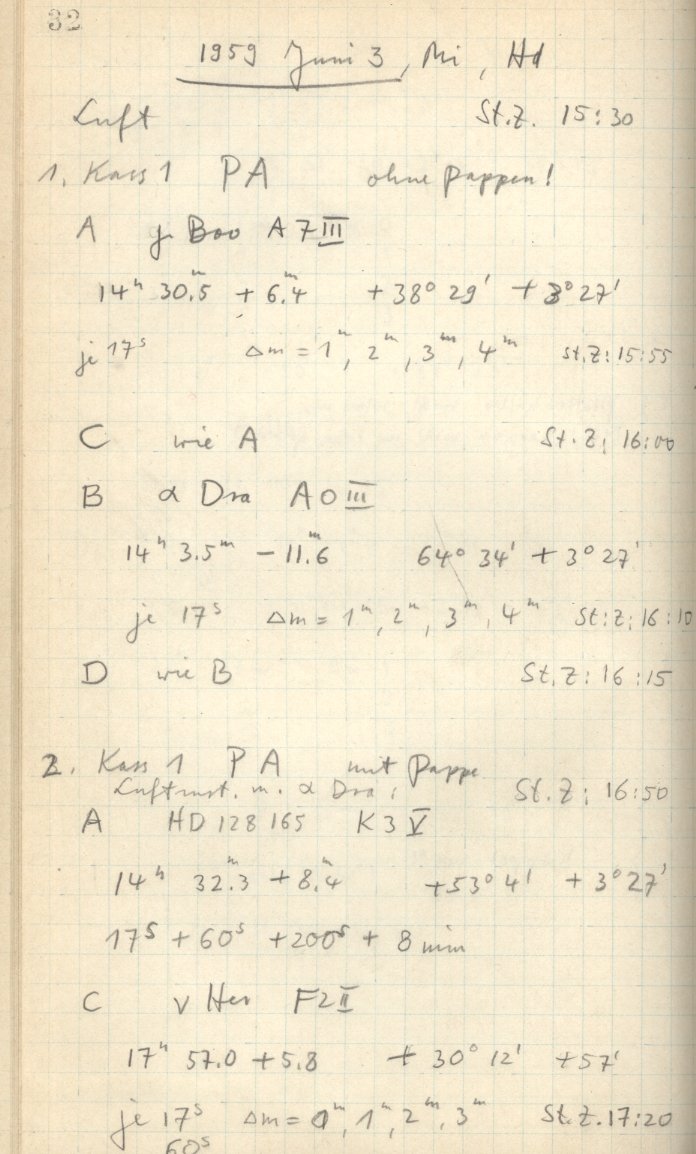 32
1959 Juni 3, Mi, Hd
Luft St.Z. 15:30
1. Kass 1 PA ohne Pappen!
A γ Boo A7III
14ʰ 30.5ᵐ + 6.4ᵐ +38° 29' + 3° 27'
je 17ˢ Δm = 1ᵐ, 2ᵐ, 3ᵐ, 4ᵐ St.Z: 15:55
C wie A St.Z: 16:00
B α Dra A0III
14ʰ 3.5ᵐ − 11.6ᵐ 64° 34' + 3° 27'
je 17ˢ Δm = 1ᵐ, 2ᵐ, 3ᵐ, 4ᵐ St:Z: 16:10
D wie B St.Z: 16:15
2. Kass 1 PA mit Pappe
m. α Dra St.Z: 16:50
A HD 128165 K3V
14ʰ 32.3ᵐ + 8.4ᵐ +53° 4' + 3° 27'
17ˢ + 60ˢ + 200ˢ + 8 min
C ν Her F2II
17ʰ 57.0 + 5.8 + 30° 12' + 57'
je 17ˢ Δm = 0ᵐ, 1ᵐ, 2ᵐ, 3ᵐ St.Z. 17:20
60ˢ